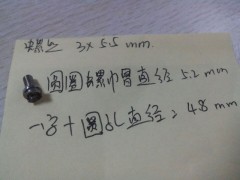 螺丝 3x5.5 mm.
圆圈螺巾冒直径 5.2 mm
一字+圆孔直径：4.8 mm